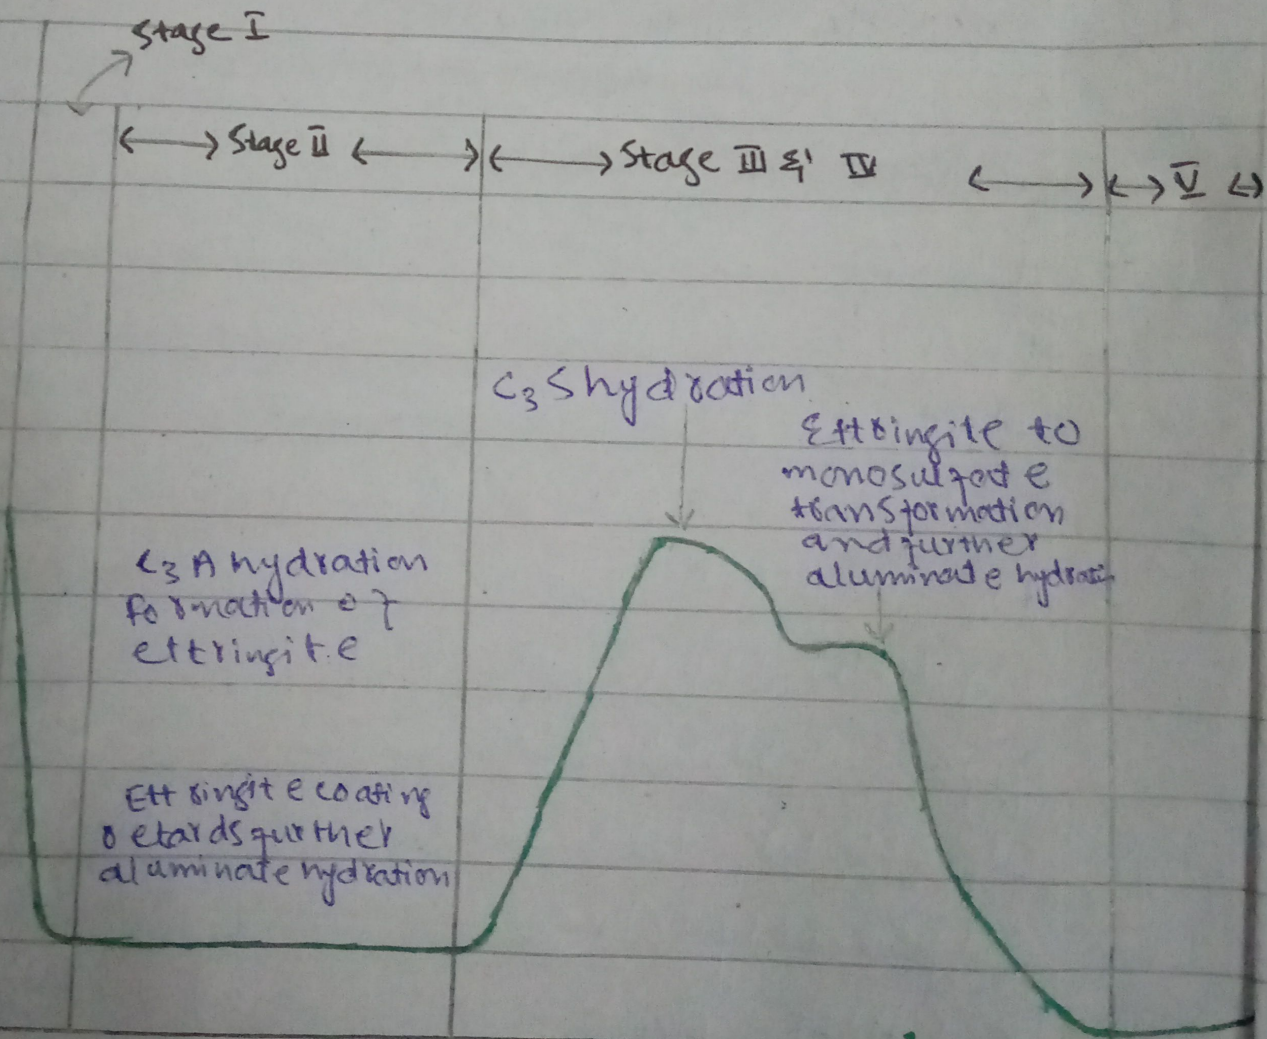 Stage I
Stage II
Stage III & IV
V
C3S hydration
Ettringite to
monosulfate
transformation
and further
aluminate hydration
C3A hydration
formation of
ettringite
Ettringite coating
retards further
aluminate hydration